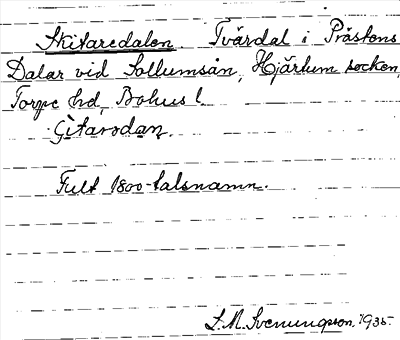 Skitaredalen. Tvärdal i Prästens
Dalar vid Sollumsån, Hjärtum socken,
Torpe hd, Bohus l.
Gitarodan.
Fult 1800-talsnamn.
S. M. Svenungsson. 1935.